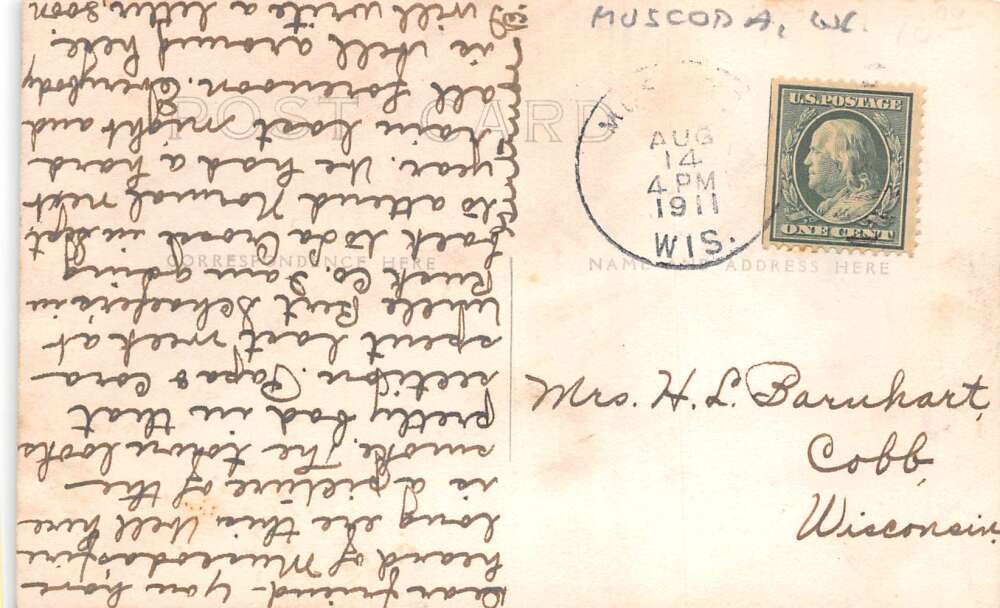 MUSCODA, WI.
POST CARD
CORRESPONDENCE HERE
NAME AND ADDRESS HERE
AUG
14
4 PM
1911
WIS.
U.S. POSTAGE
ONE CENT
Mrs. H. L. Barnhart,
Cobb,
Wisconsin.
Dear friend - You have
heard of Muscoda's fire
long ere this. Well here
is a picture of the
smoke. The town looks
pretty bad in that
section. Papa & Cora
spent last week at
Wille Schaefer's in
Rusk Co. I am going
back to La Crosse in Sept
to attend Normal next
year. We had a hard
rain last night and
all forenoon. Everybody
is well around here.
I will write a letter soon